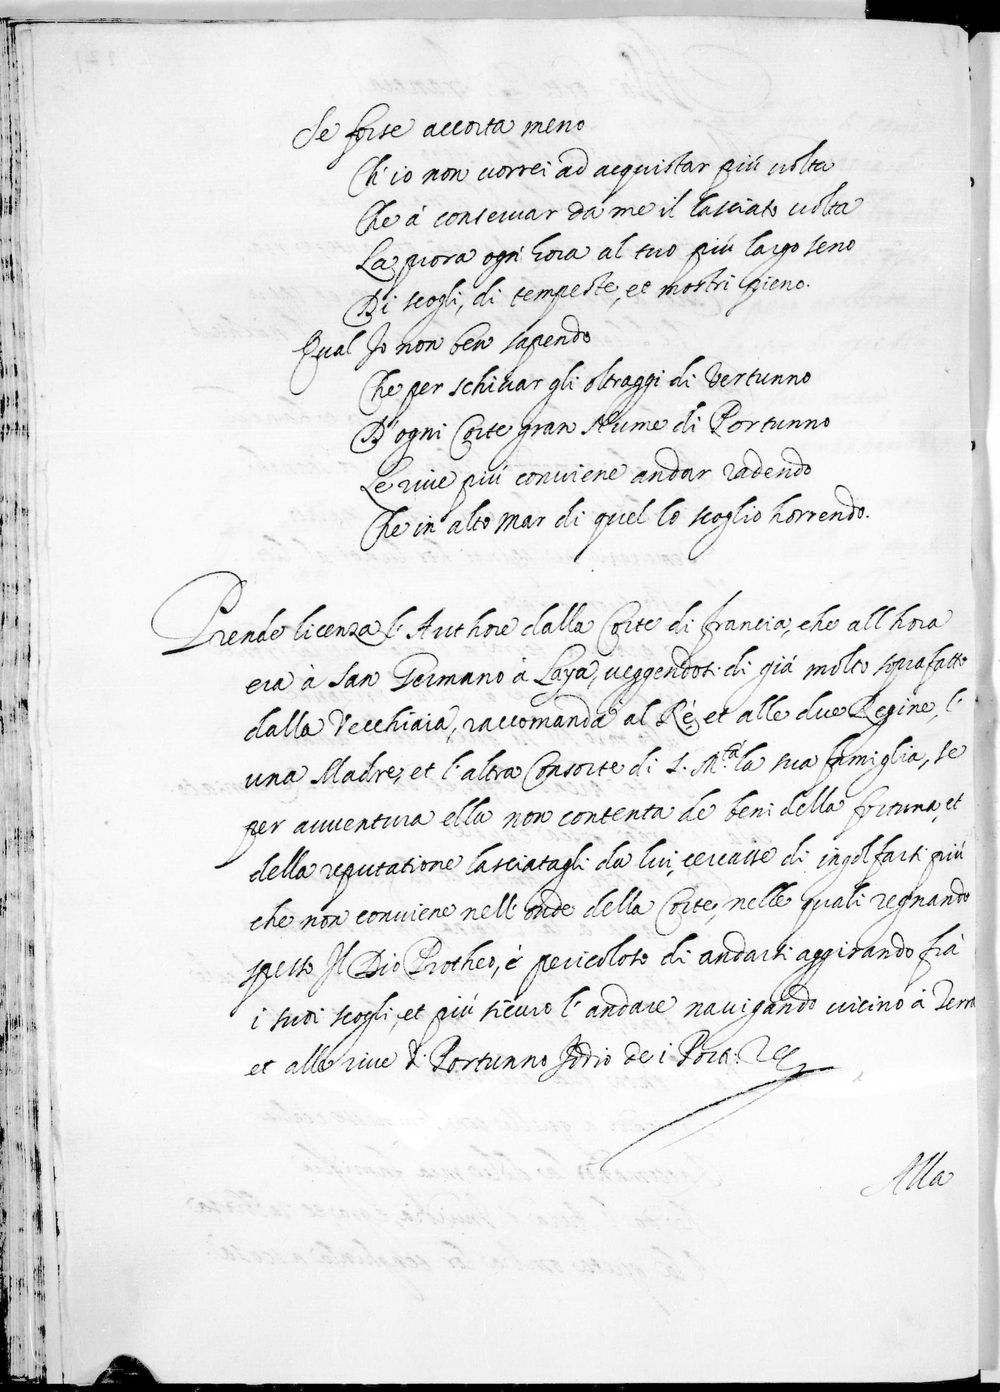 Se forse accorta meno
Ch'io non vorrei ad acquistar più volta
Che à conservar da me il lasciato volta
La prora ogn'hora al tuo più largo seno
Di scogli, di tempeste, et mostri pieno.
Qual Io non ben sapendo
Che per schivar gli oltraggi di Vertunno
D'ogni Corte gran Nume di Portunno
Le rive più conviene andar radendo
Che in alto mar di quel lo scoglio horrendo.
Prende licenza l'Authore dalla Corte di francia, che all'hora
era à San Germano à Laya, veggendosi di già molto soprafatto
dalla Vecchiaia, raccomanda al Rè, et alle due Regine, l'
una Madre, et l'altra Consorte di S. M.tà la sua famiglia, se
per avventura ella non contenta de beni della fortuna, et
della reputatione lasciatagli da lui, cercasse di ingolfarsi più
che non conviene nell'onde della Corte, nelle quali regnando
spesso Il Dio Protheo, è pericoloso di andarsi aggirando frà
i suoi scogli, et più sicuro l'andare navigando vicino à Terra
et alle rive di Portunno Iddio de i Porti.
Alla